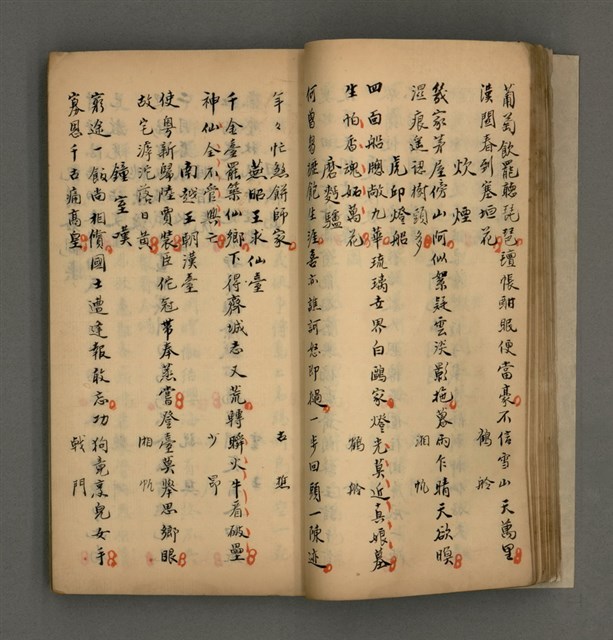 葡萄飲罷聽琵琶氊帳酣眠便當豪不信雪山天萬里
漢關春到塞垣花 鶴舲
炊煙
幾家茅屋傍山何似絮疑雲淡影拖暮雨乍晴天欲暝
濕痕遙認樹頭多 湘帆
虎邱燈船
四面船牕敞九華琉璃世界白鷗家燈光莫近真娘墓
生怕香魂妬萬花 鶴舲
磨麪驢
飽生涯喜亦誰訶怒即撾一步回頭一陳迹
年々忙煞餅師家
燕昭王求仙臺
千金臺罷築仙鄉下得齊城志又荒轉瞬火牛看破壘
神仙全不管興亡 少
南越王朝漢臺
使粵新歸陸賈裝臣佗冠帶奉蒸嘗登臺莫舉思鄉眼
故宅滹沱落日黃 湘帆
鐘室嘆
窮途一飯尚相償國士遭逢報敢忘功狗竟烹兒女手
寡恩千古痛高皇 戟門